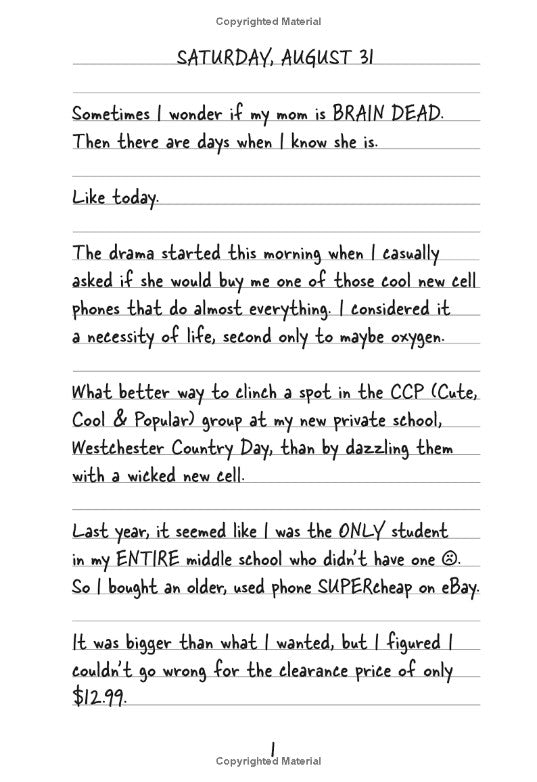 Copyrighted Material
SATURDAY, AUGUST 31
Sometimes I wonder if my mom is BRAIN DEAD.
Then there are days when I know she is.
Like today.
The drama started this morning when I casually
asked if she would buy me one of those cool new cell
phones that do almost everything. I considered it
a necessity of life, second only to maybe oxygen.
What better way to clinch a spot in the CCP (Cute,
Cool & Popular) group at my new private school,
Westchester Country Day, than by dazzling them
with a wicked new cell.
Last year, it seemed like I was the ONLY student
in my ENTIRE middle school who didn't have one ☹.
So I bought an older, used phone SUPERcheap on eBay.
It was bigger than what I wanted, but I figured I
couldn't go wrong for the clearance price of only
$12.99.
1
Copyrighted Material